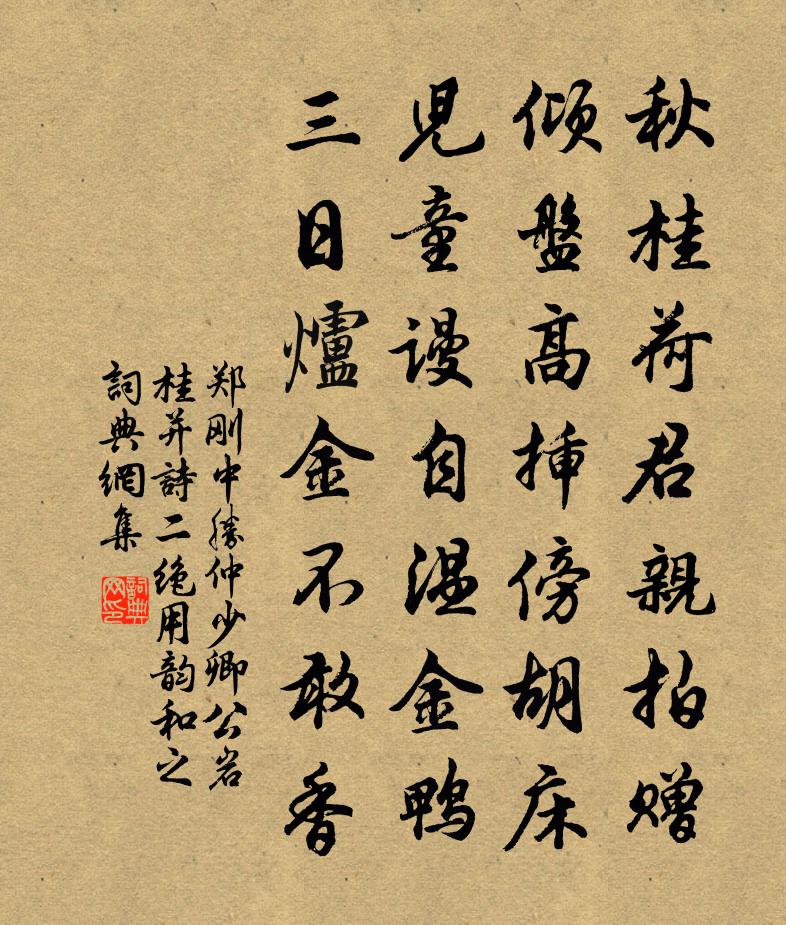 秋桂荷君親拍贈
傾盤高挿傍胡床
児童謾自温金鴨
三日爐金不敢香
郑刚中勝仲少卿公岩
桂并詩二绝用韵和之
詞典網集
詞典
网印